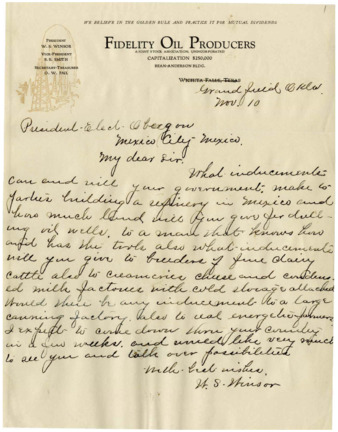 WE BELIEVE IN THE GOLDEN RULE AND PRACTISE IT FOR MUTUAL DIVIDENDS
PRESIDENT
W. S. WINSOR
VICE-PRESIDENT
SECRETARY-TREASURER
FIDELITY OIL PRODUCERS
A JOINT STOCK ASSOCIATION, UNINCORPORATED
CAPITALIZATION $250,000
BEAN-ANDERSON BLDG.
WICHITA FALLS, TEXAS
Grandfield Okla.
Nov. 10
President-Elect Obregon
Mexico City Mexico.
My dear Sir.
What inducements
can and will your government make to
parties building a refinery in Mexico and
how much land will you give for drill-
ing oil wells, to a man that knows how
and has the tools also what inducements
will you give to breeders of fine dairy
cattle also to creameries cheese and condens-
ed milk factories with cold storage attached
Would there be any inducement to a large
canning factory, also to real energetic farmers
I expect to come down thru your country
in a few weeks. and would like very much
to see you and talk over possibilities
With best wishes.
W. S. Winsor